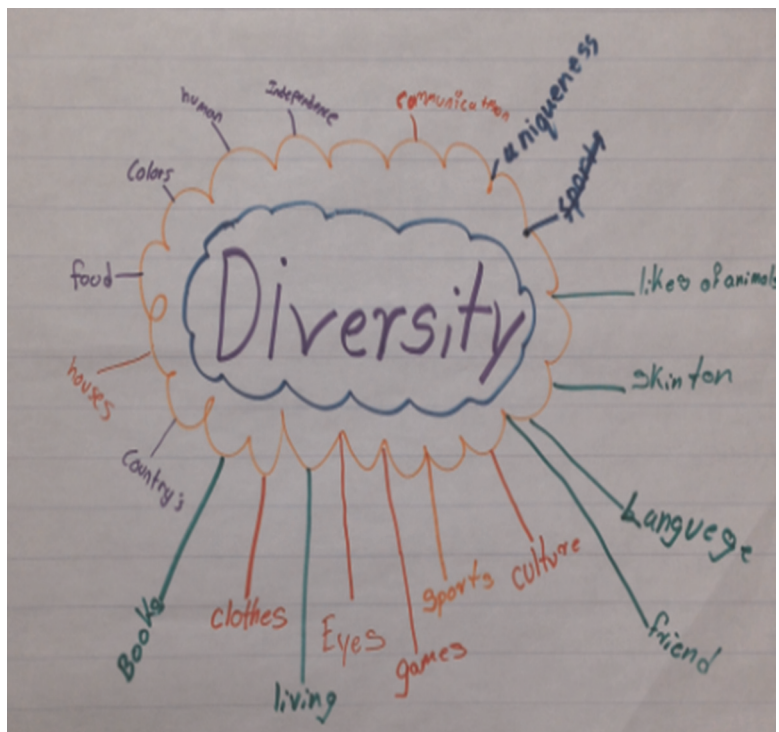 Diversity
human
Independence
communication
uniqueness
sports
likes of animals
skin ton
Languege
friend
culture
sports
games
Eyes
living
clothes
Books
Country's
houses
food
Colors